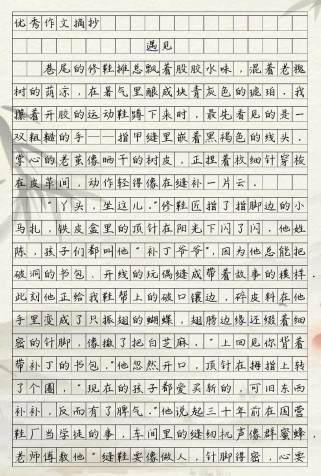 优秀作文摘抄
遇见
巷尾的修鞋摊总飘着股胶水味，混着老槐
树的荫凉，在暑气里酿成块青灰色的琥珀，我
攥着开胶的运动鞋蹲下来时，最先看见的是一
双粗糙的手——指甲缝里嵌着黑褐色的线头，
掌心的老茧像晒干的树皮，正捏着枚细针穿梭
在皮革间，动作轻得像在缝补一片云．
“丫头，坐这儿．”修鞋匠指了指脚边的小
马扎，铁皮盒里的顶针在阳光下闪了闪，他姓
陈，孩子们都叫他“补丁爷爷”，因为他总能把
破洞的书包、开线的玩偶缝成带着故事的模样．
此刻他正给我鞋帮上的破口镶边，碎皮料在他
手里变成了只振翅的蝴蝶，翅膀边缘还缀着细
密的针脚，像撒了把白芝麻，“上回见你背着
带补丁的书包．”他忽然开口，顶针在拇指上转
了个圈，“现在的孩子都爱买新的，可旧东西
补补，反而有了脾气．”他说起三十年前在国营
鞋厂当学徒的事，车间里的缝纫机声像群蜜蜂，
老师傅教他“缝鞋要像做人，针脚得密，心要